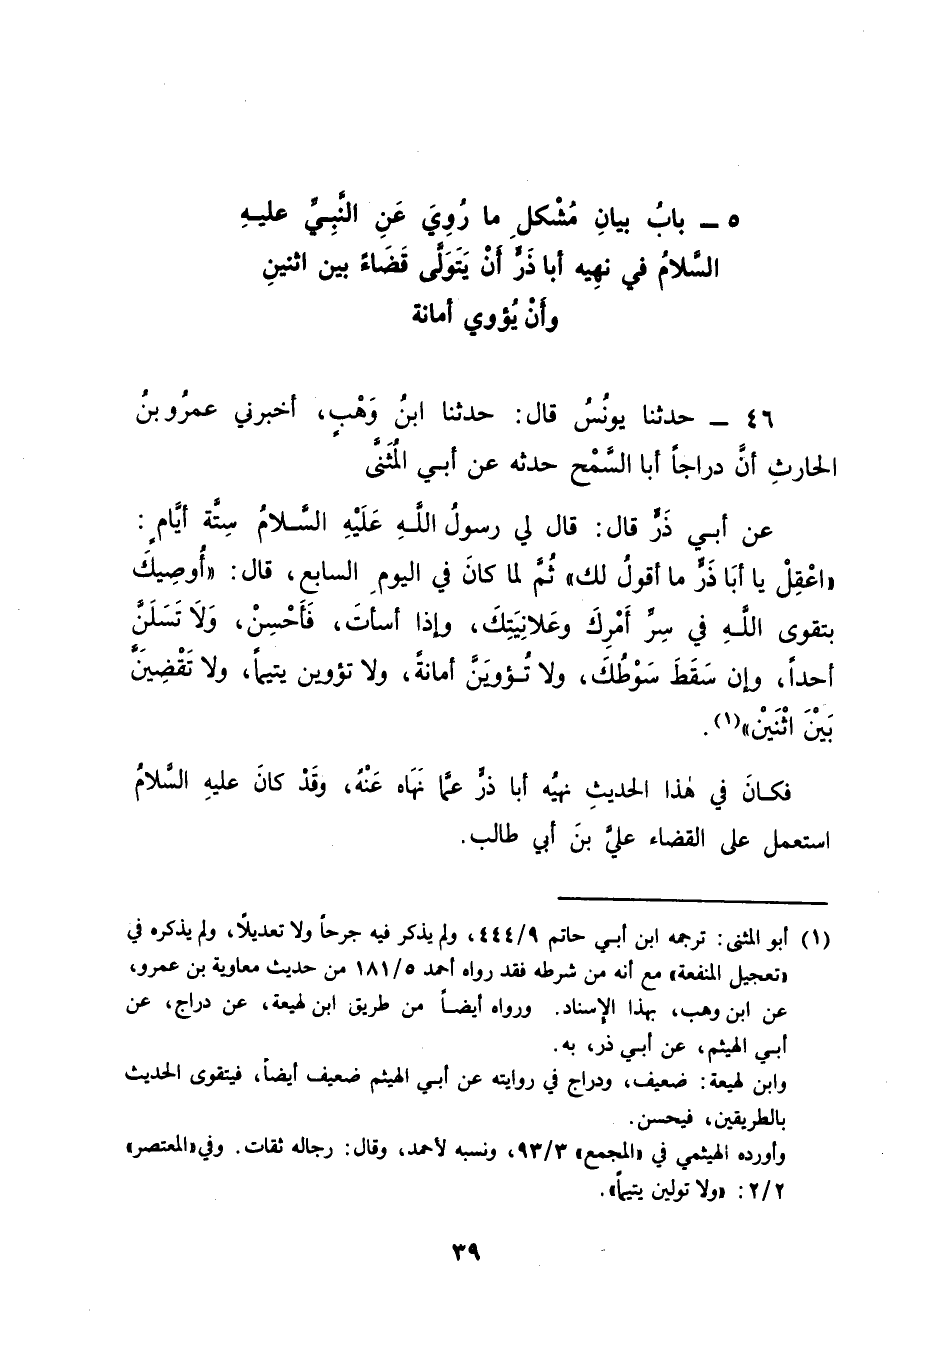 ٥ ــ بابُ بيانِ مُشْكلِ ما رُوِيَ عَنِ النَّبِيِّ عليهِ
السَّلامُ في نهيِه أبا ذَرٍّ أَنْ يَتَوَلَّى قَضَاءً بين اثنينِ
وأَنْ يُؤوي أمانة
٤٦ ــ حدثنا يونُسُ قال: حدثنا ابنُ وَهْبٍ، أخبرني عمرُو بنُ
الحارثِ أنَّ دراجاً أبا السَّمْحِ حدثه عن أبي المُثَنَّى
عن أبي ذَرٍّ قال: قال لي رسولُ اللَّهِ عَلَيْهِ السَّلامُ سِتَّة أيَّامٍ:
«اعْقِلْ يا أَبَا ذَرٍّ ما أقولُ لك» ثُمَّ لما كانَ في اليومِ السابع، قال: «أُوصِيكَ
بتقوى اللَّهِ في سِرِّ أَمْرِكَ وعَلانِيَتِكَ، وإذا أسأتَ، فَأَحْسِنْ، وَلَا تَسَلَنَّ
أحداً، وإن سَقَطَ سَوْطُكَ، ولا تُؤويَنَّ أمانةً، ولا تؤوين يتيماً، ولا تَقْضِيَنَّ
بَيْنَ اثْنَيْنِ»(١).
فكانَ في هٰذا الحديثِ نهيُه أبا ذرٍّ عمَّا نَهَاه عَنْهُ، وقَدْ كانَ عليهِ السَّلامُ
استعمل على القضاء عليَّ بنَ أبي طالب.
(١) أبو المثنى: ترجمه ابن أبي حاتم ٤٤٤/٩، ولم يذكر فيه جرحاً ولا تعديلًا، ولم يذكره في
«تعجيل المنفعة» مع أنه من شرطه فقد رواه أحمد ١٨١/٥ من حديث معاوية بن عمرو،
عن ابن وهب، بهذا الإسناد. ورواه أيضاً من طريق ابن لهيعة، عن دراج، عن
أبي الهيثم، عن أبي ذر، به.
وابن لهيعة: ضعيف، ودراج في روايته عن أبي الهيثم ضعيف أيضاً، فيتقوى الحديث
بالطريقين، فيحسن.
وأورده الهيثمي في «المجمع» ٩٣/٣، ونسبه لأحمد، وقال: رجاله ثقات. وفي«المعتصر»
٢/٢: «ولا تولين يتيماً».
٣٩